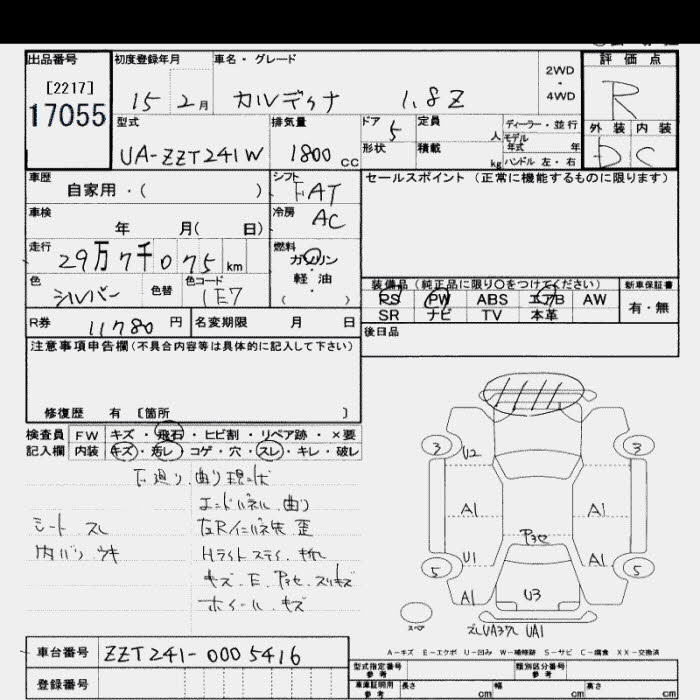 出品番号
[2217]
17055
初度登録年月
15 2月
車名・グレード
カルディナ 1.8Z
2WD
・
4WD
評価点
R
外装 内装
D C
型式
UA-ZZT241W
排気量
1800 cc
ドア
5
形状
定員 人
積載 kg
ディーラー・並行
モデル
年式 年
ハンドル 左・右
車歴
自家用・( )
シフト
FAT
セールスポイント(正常に機能するものに限ります)
車検
年 月( 日)
冷房
AC
走行
29万7千075 km
燃料
ガソリン
・
軽油
( )
色
シルバー
色替
色コード
1E7
装備品(純正品に限り○をつけてください)
新車保証書
PS PW ABS エアB AW
有・無
SR ナビ TV 本革
R券
11780 円
名変期限 月 日
後日品
注意事項申告欄(不具合内容等は具体的に記入して下さい)
修復歴 有 [箇所 ]
検査員 FW キズ・飛石・ヒビ割・リペア跡・×要
記入欄 内装 キズ・汚レ・コゲ・穴・スレ・キレ・破レ
下廻り.曲り 現状
エンドパネル.曲り
シート スレ
左Rインパネ先 歪
内バリ ウキ
Hライトステイ.折れ
キズ.E.アセ.スリキズ
ホイール.キズ
3 3
U2
A1 A1
アセ
U1 A1
5 5
A1 U3
スペア
ズレUA3穴 UA1
A-キズ E-エクボ U-凹み W-補修跡 S-サビ C-腐食 XX-交換済
車台番号
ZZT241-0005416
型式指定番号
参考
類別区分番号
参考
登録番号
車庫証明用
参考
長さ cm
幅 cm
高さ cm